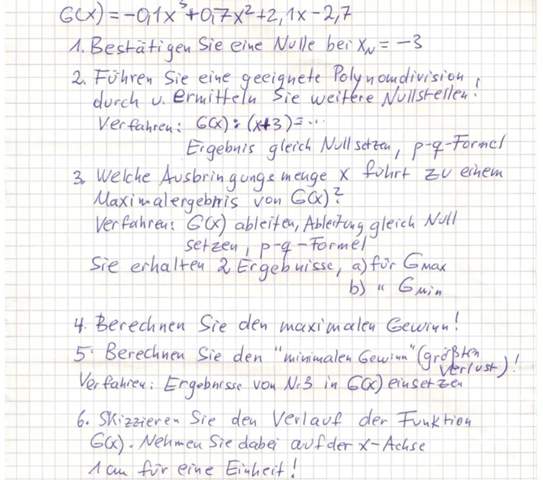 G(x) = -0,1x³+0,7x²+2,1x-2,7
1. Bestätigen Sie eine Nulle bei xN = -3
2. Führen Sie eine geeignete Polynomdivision
durch u. ermitteln Sie weitere Nullstellen!
Verfahren: G(x) : (x+3) = ...
Ergebnis gleich Null setzen, p-q-Formel
3. Welche Ausbringungsmenge x führt zu einem
Maximalergebnis von G(x)?
Verfahren: G(x) ableiten, Ableitung gleich Null
setzen, p-q-Formel
Sie erhalten 2 Ergebnisse, a) für GMAX
b) " GMin
4. Berechnen Sie den maximalen Gewinn!
5. Berechnen Sie den "minimalen Gewinn" (größten
Verlust)!
Verfahren: Ergebnisse von Nr.3 in G(x) einsetzen
6. Skizzieren Sie den Verlauf der Funktion
G(x). Nehmen Sie dabei auf der x-Achse
1 cm für eine Einheit!